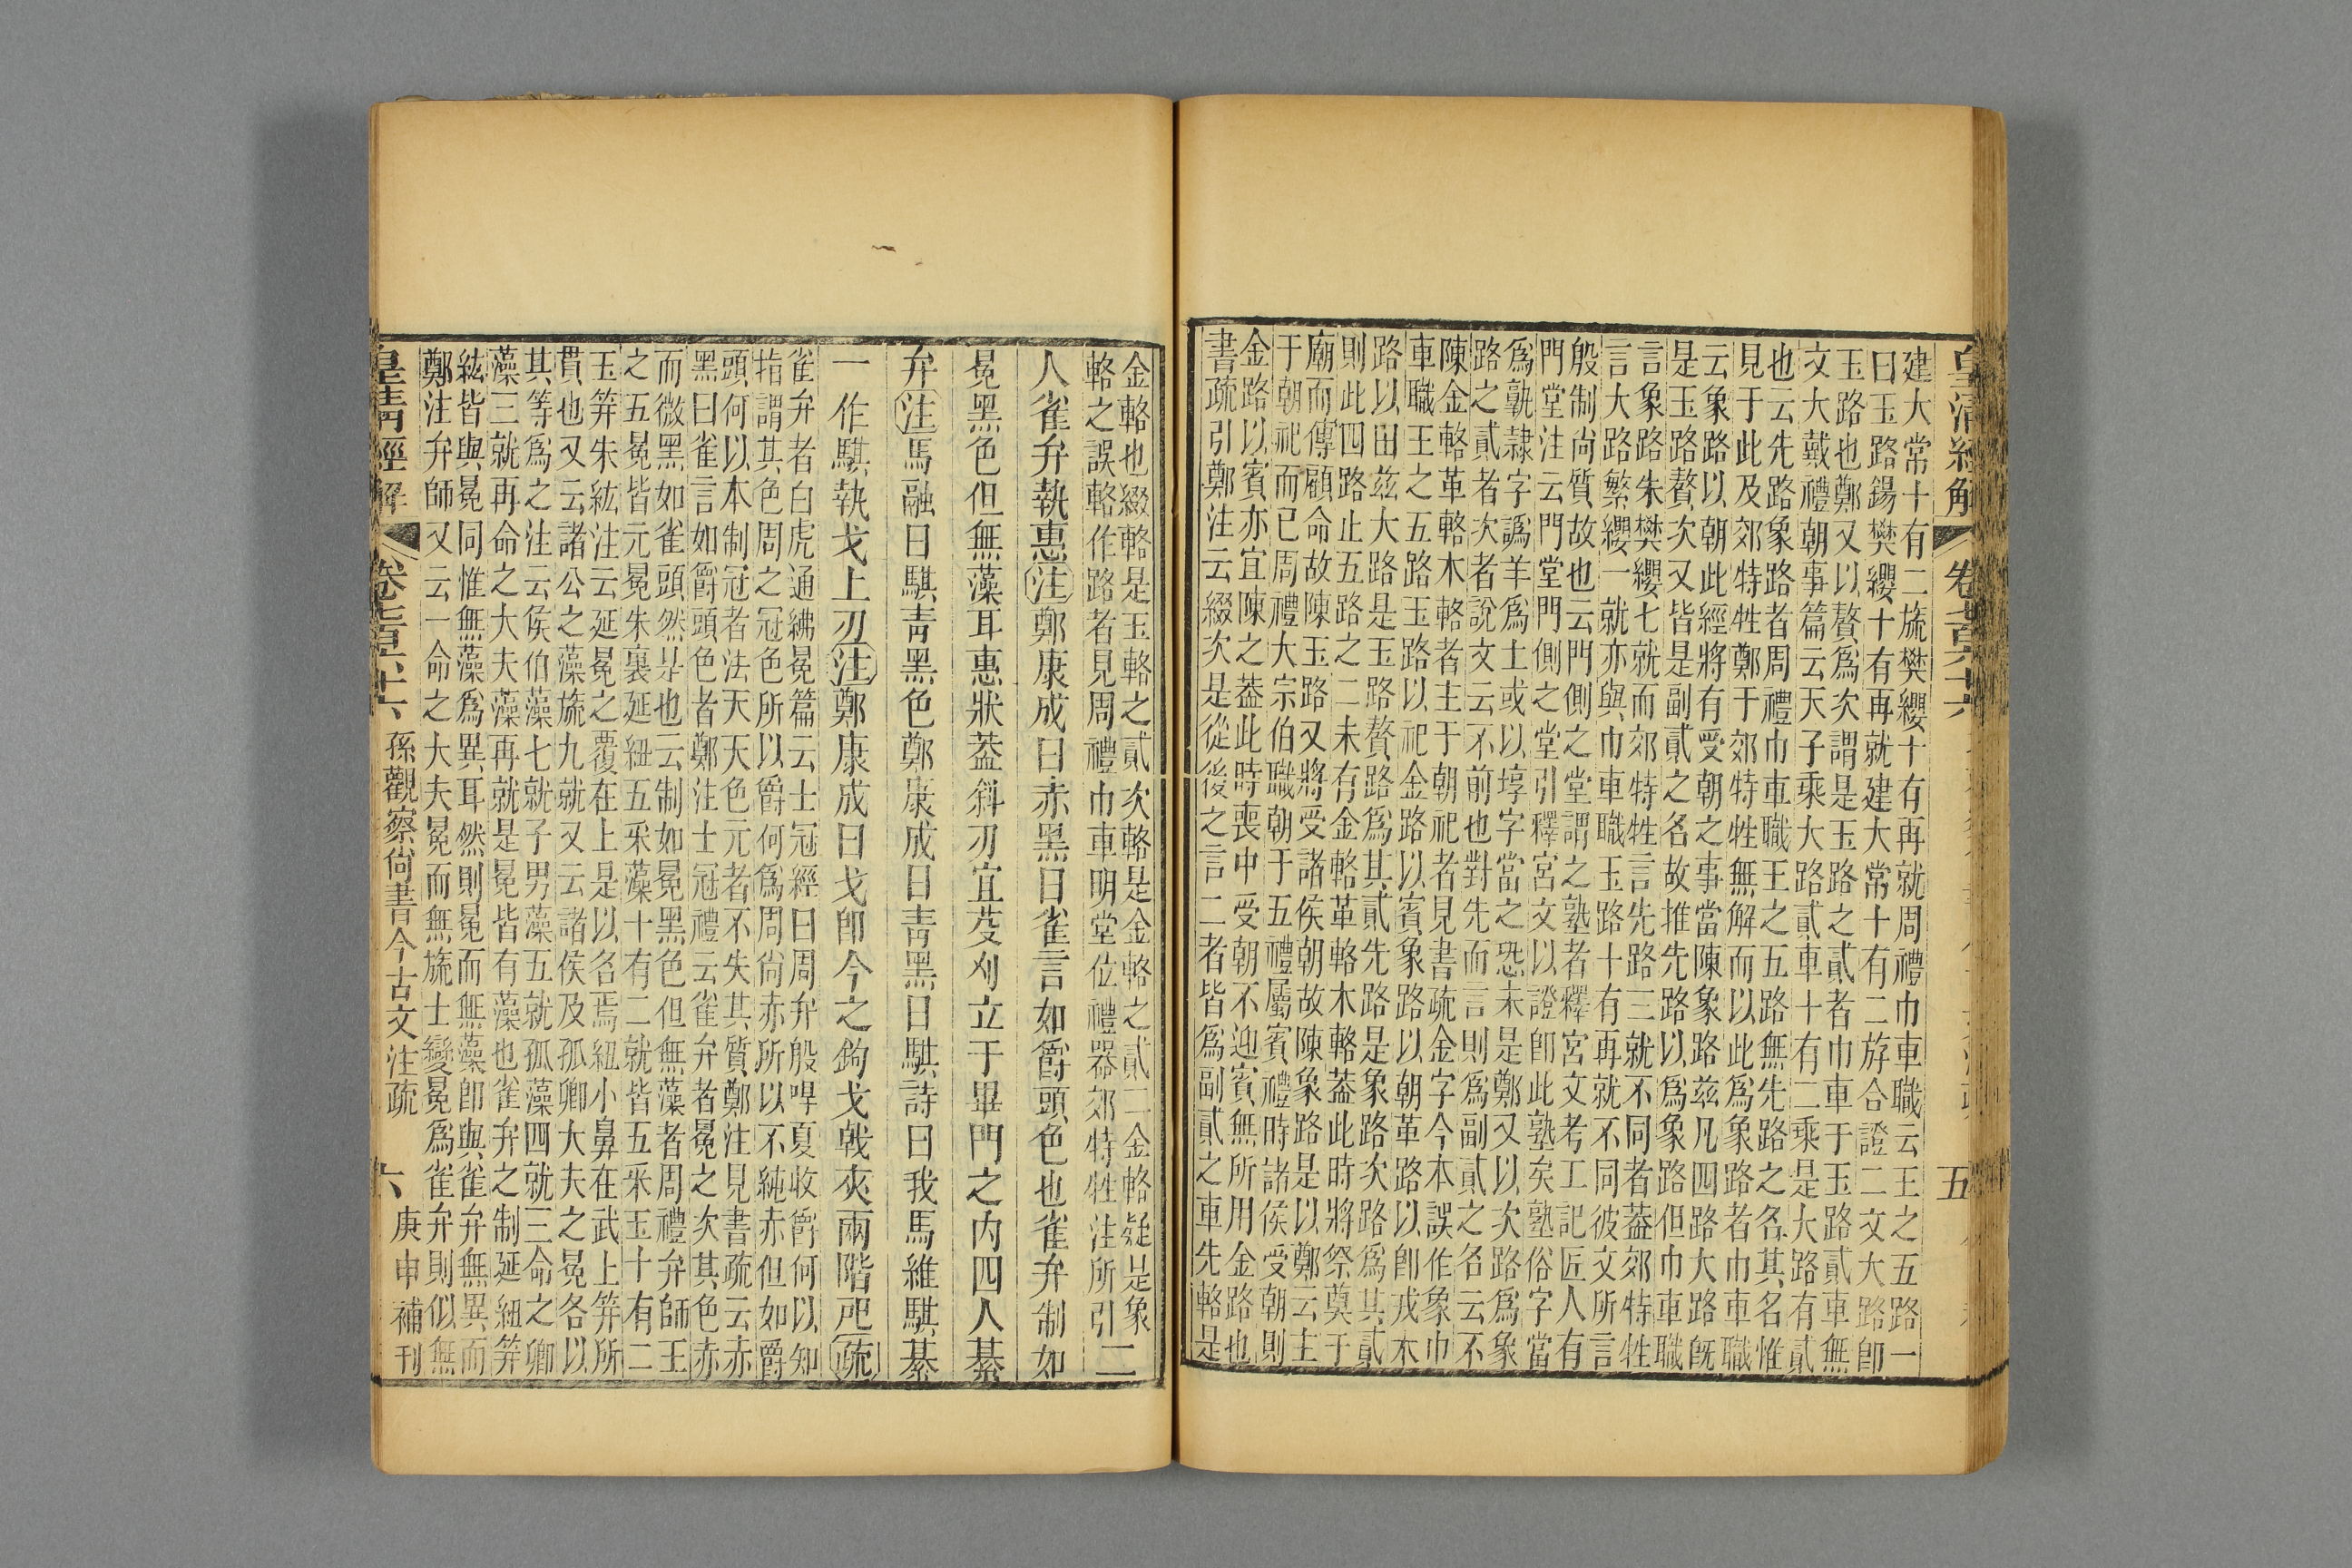 皇淸經解 卷七百六十六 五
建大常十有二斿樊纓十有再就周禮巾車職云王之五路一
曰玉路鍚樊纓十有再就建大常十有二斿合證二文大路卽
玉路也鄭又以贅爲次謂是玉路之貳者巾車于玉路貳車無
文大戴禮朝事篇云天子乘大路貳車十有二乘是大路有貳
也云先路象路者周禮巾車職王之五路無先路之名其名惟
見于此及郊特牲鄭于郊特牲無解而以此爲象路者巾車職
云象路以朝此經將有受朝之事當陳象路茲凡四路大路旣
是玉路贅次又皆是副貳之名故推先路以爲象路但巾車職
言象路朱樊纓七就而郊特牲言先路三就不同者葢郊特牲
言大路繁纓一就亦與巾車職玉路十有再就不同彼文所言
殷制尚質故也云門側之堂謂之塾者釋宮文考工記匠人有
門堂注云門堂門側之堂引釋宮文以證卽此塾矣塾俗字當
爲孰隸字譌羊爲土或以埻字當之恐未是鄭又以次路爲象
路之貳者次者說文云不前也對先而言則爲副貳之名云不
陳金輅革輅木輅者主于朝祀者見書疏金字今本誤作象巾
車職王之五路玉路以祀金路以賓象路以朝革路以卽戎木
路以田茲大路是玉路贅路爲其貳先路是象路次路爲其貳
則此四路止五路之二未有金輅革輅木輅葢此時將祭奠于
廟而傳顧命故陳玉路又將受諸侯朝故陳象路是以鄭云主
于朝祀而已周禮大宗伯職朝于五禮屬賓禮時諸侯受朝則
金路以賓亦宜陳之葢此時喪中受朝不迎賓無所用金路也
書疏引鄭注云綴次是從後之言二者皆爲副貳之車先輅是
金輅也綴輅是玉輅之貳次輅是金輅之貳二金輅疑是象
輅之誤輅作路者見周禮巾車明堂位禮器郊特牲注所引二
人雀弁執惠注鄭康成曰赤黑曰雀言如爵頭色也雀弁制如
冕黑色但無藻耳惠狀葢斜刃宜芟刈立于畢門之内四人綦
弁注馬融曰騏靑黑色鄭康成曰靑黑曰騏詩曰我馬維騏綦
一作騏執戈上刃注鄭康成曰戈卽今之鉤戈戟夾兩階戺疏
雀弁者白虎通紼冕篇云士冠經曰周弁殷哻夏收爵何以知
指謂其色周之冠色所以爵何爲周尙赤所以不純赤但如爵
頭何以本制冠者法天天色元者不失其質鄭注見書疏云赤
黑曰雀言如爵頭色者鄭注士冠禮云雀弁者冕之次其色赤
而微黑如雀頭然是也云制如冕黑色但無藻者周禮弁師王
之五冕皆元冕朱裏延紐五采藻十有二就皆五采玉十有二
玉笄朱紘注云延冕之覆在上是以名焉紐小鼻在武上笄所
貫也又云諸公之藻斿九就又云諸侯及孤卿大夫之冕各以
其等爲之注云侯伯藻七就子男藻五就孤藻四就三命之卿
藻三就再命之大夫藻再就是冕皆有藻也雀弁之制延紐笄
紘皆與冕同惟無藻爲異耳然則冕而無藻卽與雀弁無異而
鄭注弁師又云一命之大夫冕而無斿士變冕爲雀弁則似無
皇淸經解 卷七百六十六 孫觀察尙書今古文注疏 六 庚申補刊